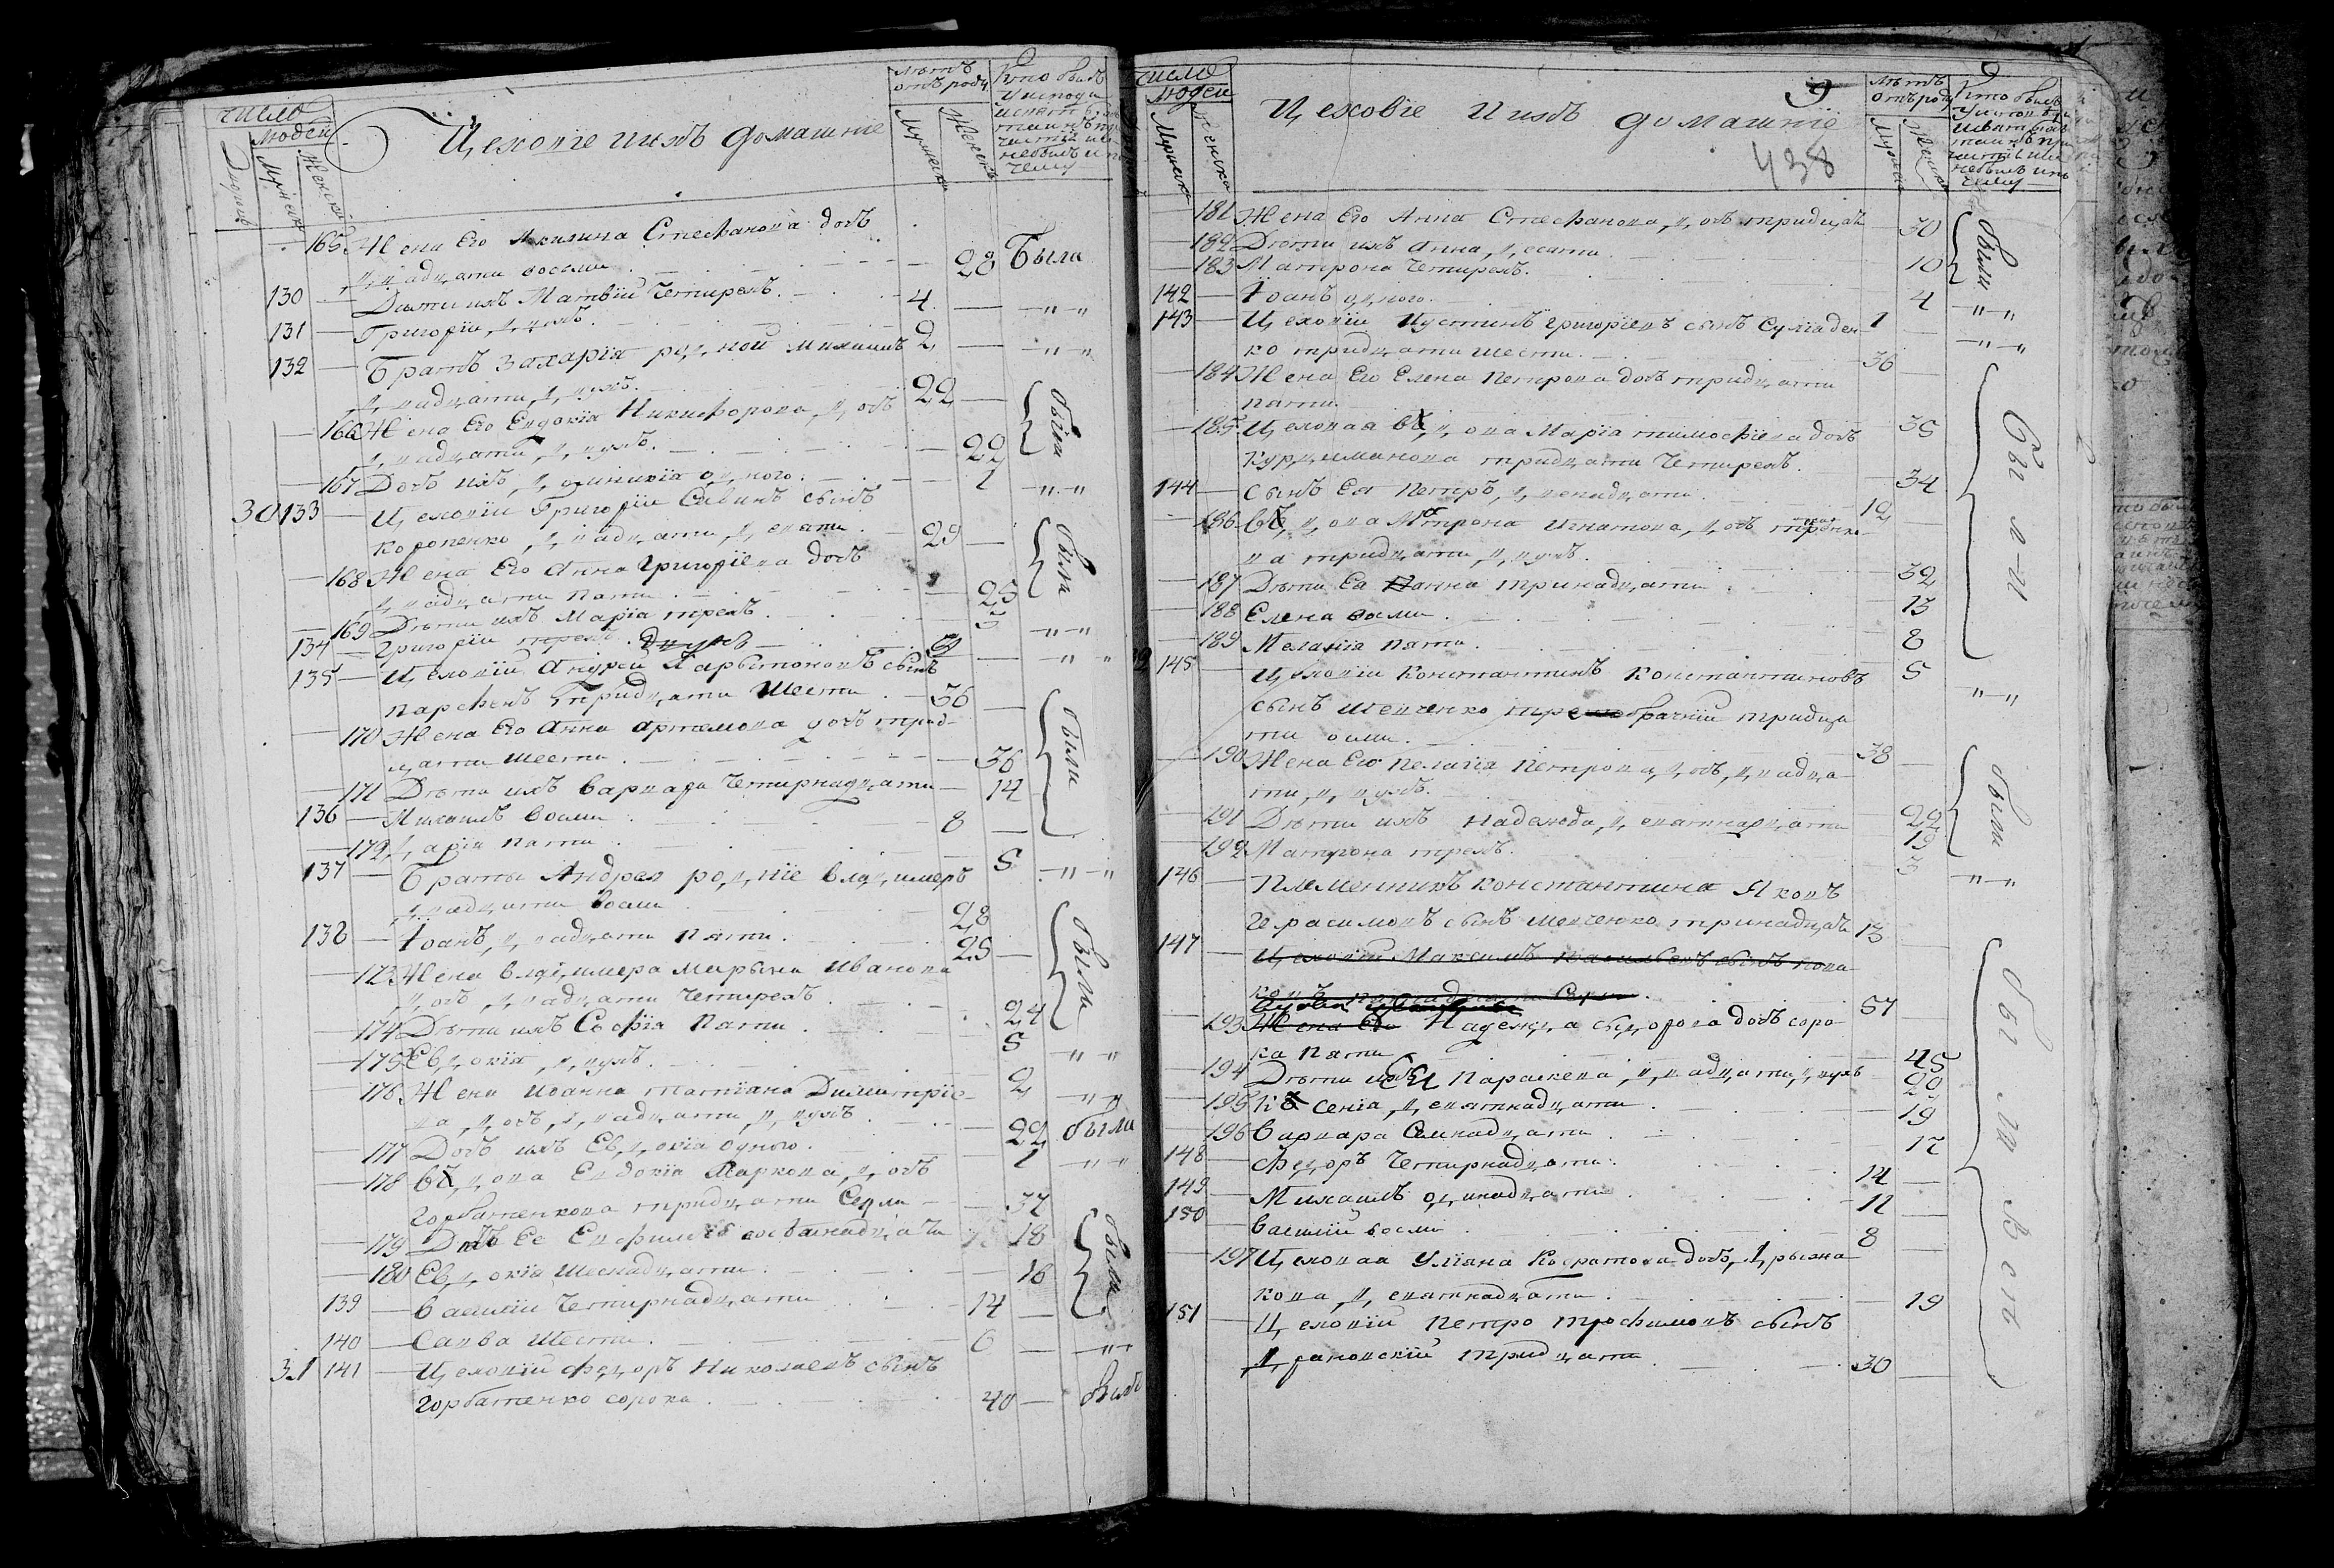 число
людей
Дворовъ
Мужеска
Женска
Цеховіе и ихъ домашніе
лѣтъ
отъ рода
Мужеска
Женска
Кто былъ
у исповѣди
и святыхъ
таинъ при
частія и кто
не былъ и по
чему
165 Жена его Акилина Стефанова дочь
двадцати восьми 28 Была
130 Дѣти ихъ Матвій четирехъ 4 " "
131 Григорій двухъ 2 " "
132 Братъ Захарія родной Михаилъ
двадцати двухъ 22
166 Жена его Евдокія Никифорова дочь
двадцати двухъ 22 были
167 Дочь ихъ Доминикія одного 1 " "
30 133 Цеховій Григорій Савинъ сынъ
Короненко двадцати девяти 29
168 Жена его Анна Григоріева дочь
двадцати пяти 25 были
169 Дѣти ихъ Марія трехъ 3 " "
134 Григорій трехъ 3 " "
135 Цеховій Андрей Харытоновъ сынъ
тридцати шести 36
170 Жена его Анна Артемова дочь трид-
цати шести 36 были
171 Дѣти ихъ Варвара четирнадцати 14
136 Михаилъ восми 8
172 Дарія пяти 5 " "
137 Браты Андрея родніе Владимеръ
двадцати восми 28
138 Іоанъ двадцати пяти 25
173 Жена Владимера Марына Иванова
дочь двадцати четирехъ 24 были
174 Дѣти ихъ Софія пяти 5 " "
175 Евдокія двухъ 2 " "
176 Жена Иоанна Татіана Димитріе-
ва дочь двадцати двухъ 22 была
177 Дочь ихъ Евдокія одного 1 " "
178 Вдова Евдокія Маркова дочь
Горбатенкова тридцати седми 37
179 Дѣти ее Евфимія осмнадцати 18
180 Евдокія шеснадцати 16 были
139 Василій четирнадцати 14
140 Савва шести 6 " "
31 141 Цеховій Федоръ Николаевъ сынъ
Горбатенко сорока 40 былъ
число
людей
Мужеска
Женска
Цеховіе и ихъ домашніе
9
438
лѣтъ
отъ рода
Мужеска
Женска
Кто былъ
у исповѣди
и святыхъ
таинъ при
частія и кто
не былъ и по
чему
181 Жена его Анна Стефанова дочь тридцать 30
182 Дѣти ихъ Анна десяти 10 были
183 Матрона четирехъ 4 " "
142 Іоанъ одного 1 " "
143 Цеховій Иустинъ Григоріевъ сынъ Суліаден
ко тридцати шести 36
184 Жена его Елена Петрова дочь тридцати
пяти 35
185 Цеховая вдова Марія Тимофіева дочь
Курдиманова тридцати четирехъ 34
144 Сынъ ея Петръ двенадцати 12
186 Вдова Матрона Игнатова дочь
ва тридцати двухъ 32
187 Дѣти ея Анна тринадцати 13 Были
188 Елена восми 8
189 Меланія пяти 5 " "
32 145 Цеховій Константинъ Константиновъ
сынъ Шевченко брачній тридца
ти осми 38
190 Жена его Пелагія Петрова дочь двадца-
ти двухъ 22
191 Дѣти ихъ Надежда девятнадцати 19 были
192 Матрона трехъ 3 " "
146 Племенникъ Константина Яковъ
Герасимовъ сынъ Шевченко тринадцать 13
147 Цеховій Максимъ Васильевъ сынъ Кова-
57
193 Жена его Надежда Сыдорова дочь соро-
ка пяти 45
194 Дѣти ихъ Ея Параскева двадцати двухъ 22
195 Ксенія девятнадцати 19
196 Варвара семнадцати 17
148 Федоръ четирнадцати 14
149 Михаилъ одинадцати 11
150 Василій восми 8
197 Цеховая Уліана Кодратова дочь
кова девятнадцати 19
151 Цеховій Петро Трофимовъ сынъ
Драновскій тридцати 30
были всѣ